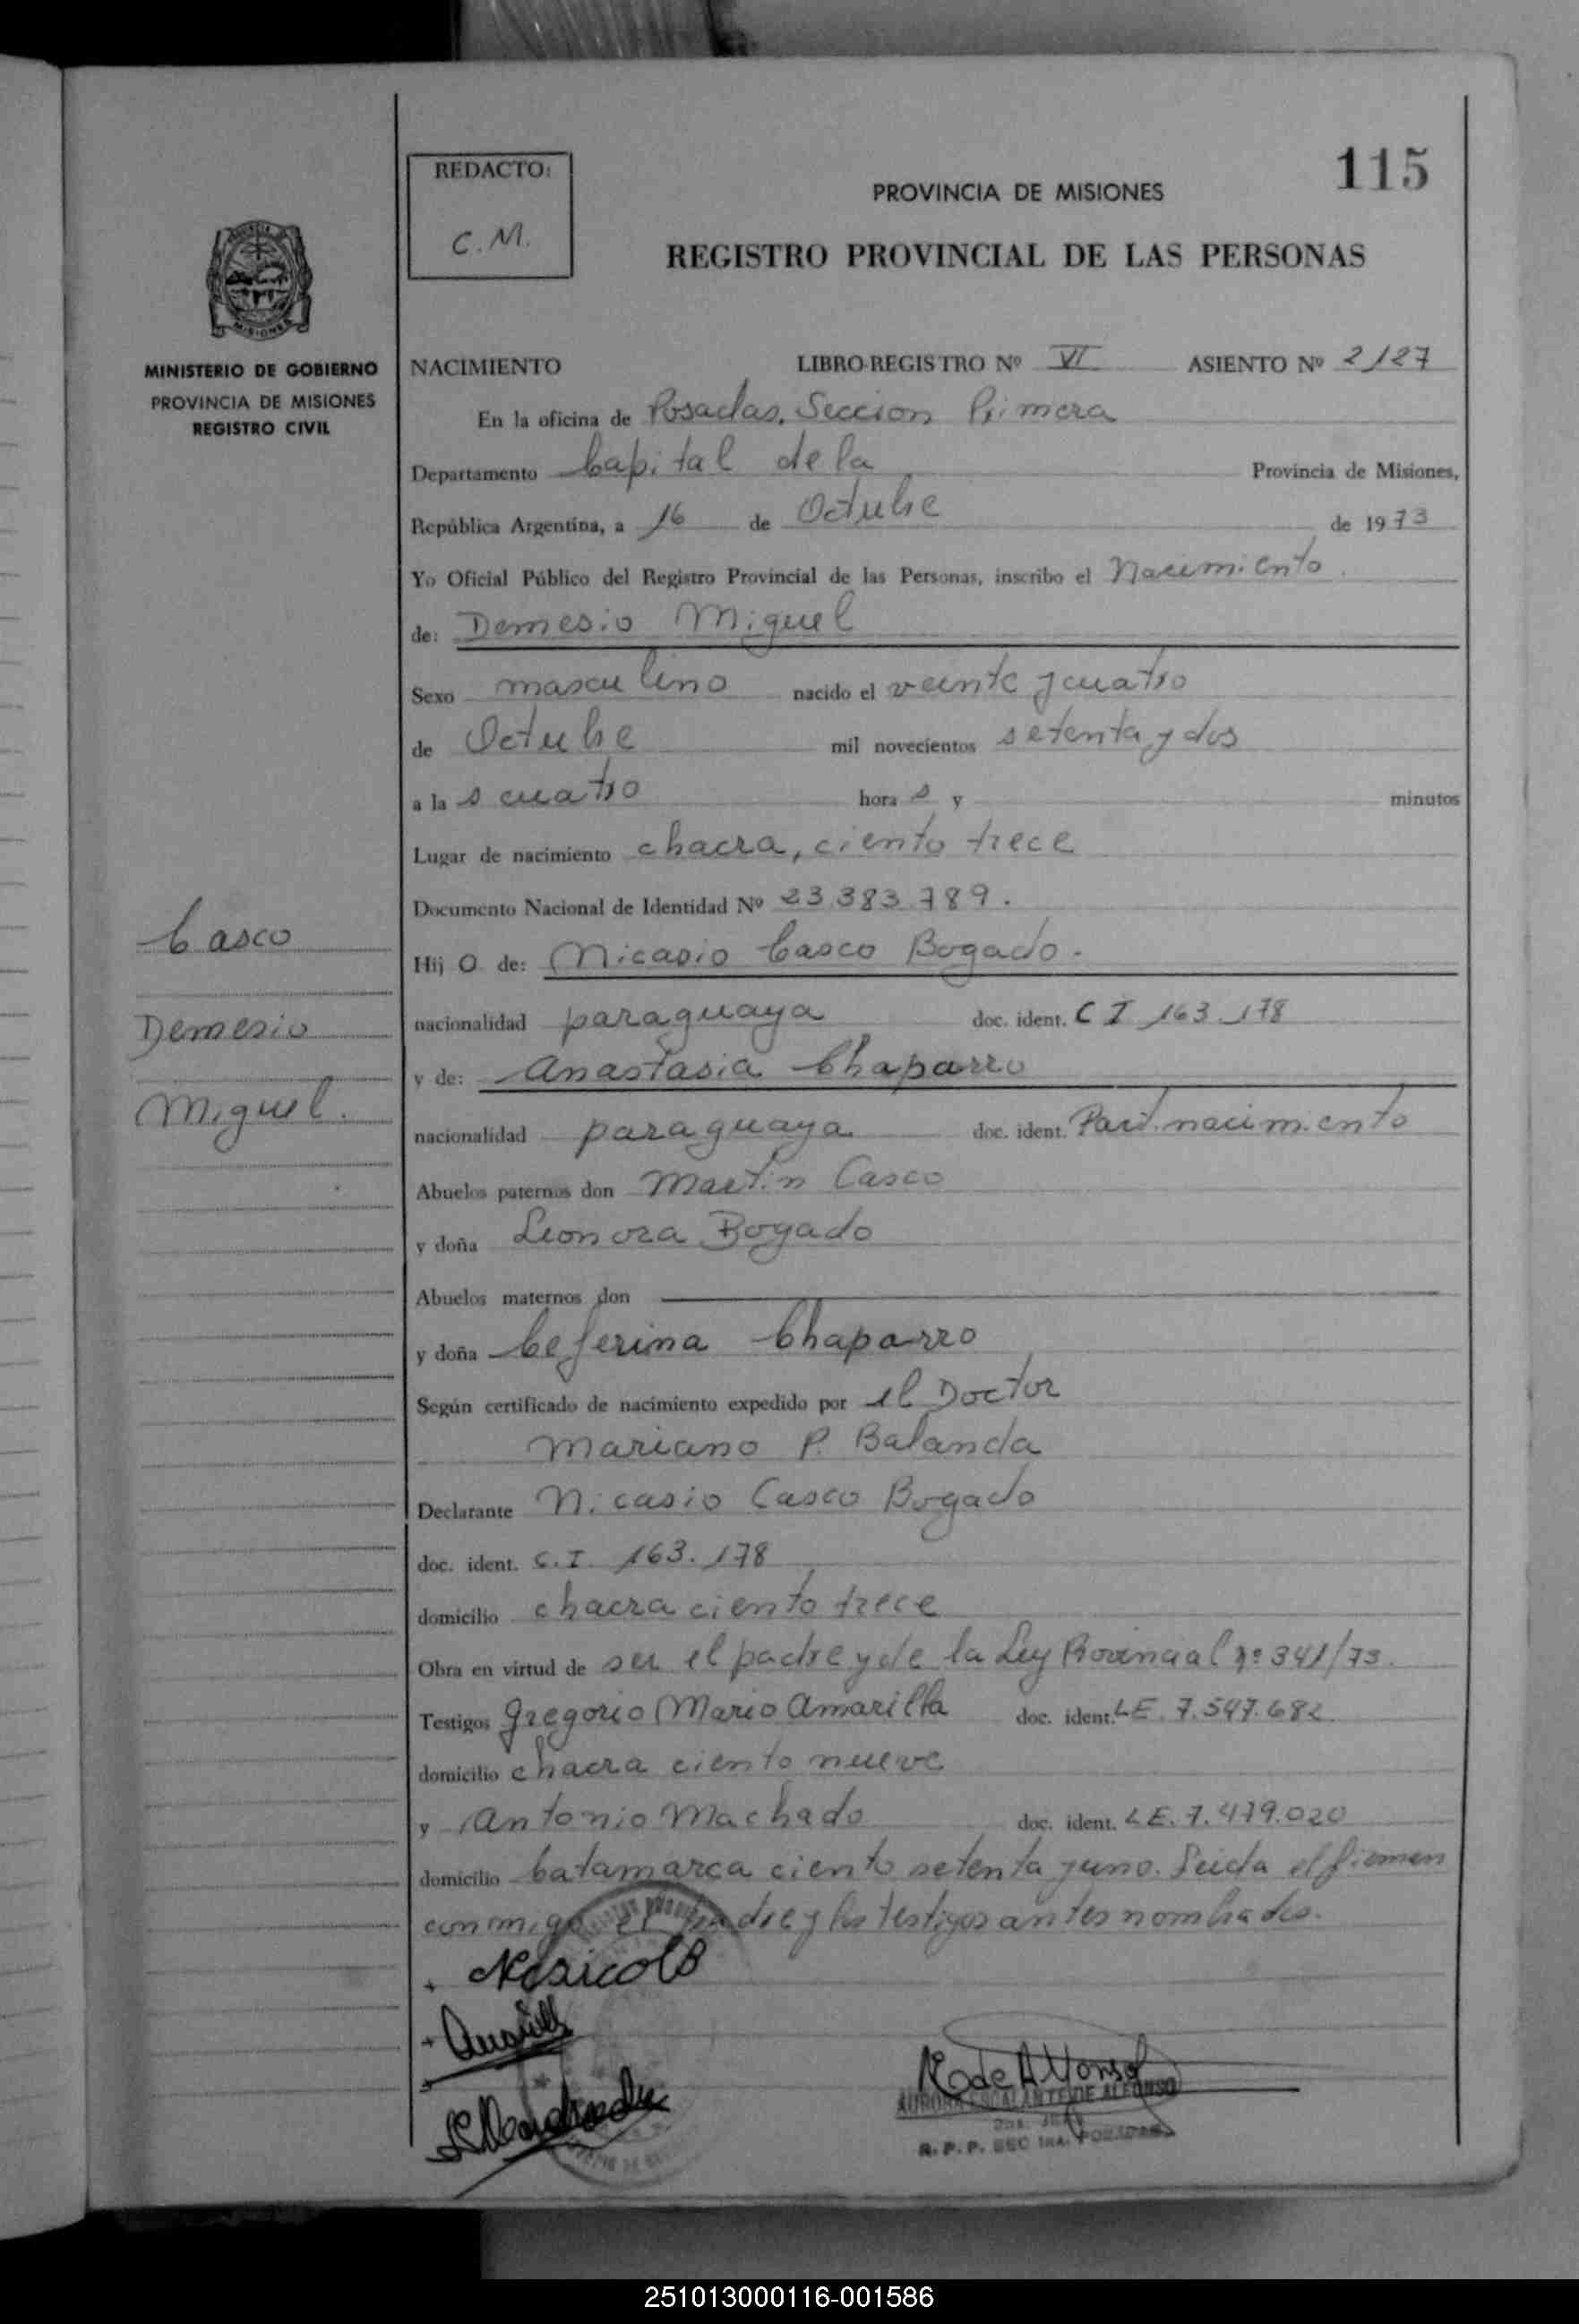 115
REDACTO:
C.M.
PROVINCIA DE MISIONES
REGISTRO PROVINCIAL DE LAS PERSONAS
MISIONES
MINISTERIO DE GOBIERNO
PROVINCIA DE MISIONES
REGISTRO CIVIL
NACIMIENTO LIBRO-REGISTRO Nº VI ASIENTO Nº 2127
En la oficina de Posadas, Seccion Primera
Departamento Capital de la Provincia de Misiones,
República Argentina, a 16 de Octubre de 1973
Yo Oficial Público del Registro Provincial de las Personas, inscribo el Nacimiento.
de: Demesio Miguel
Sexo masculino nacido el veinte y cuatro
de Octubre mil novecientos setenta y dos
a la s cuatro hora s y minutos
Lugar de nacimiento chacra, ciento trece
Documento Nacional de Identidad Nº 23.383.789.
Casco
Demesio
Miguel.
Hij o de: Nicasio Casco Bogado.
nacionalidad paraguaya doc. ident. C I 163.178
y de: Anastasia Chaparro
nacionalidad paraguaya doc. ident. Part. nacimiento
Abuelos paternos don Martin Casco
y doña Leonora Bogado
Abuelos maternos don
y doña Ceferina Chaparro
Según certificado de nacimiento expedido por el Doctor
Mariano P. Balanda
Declarante Nicasio Casco Bogado
doc. ident. C.I. 163.178
domicilio chacra ciento trece
Obra en virtud de ser el padre y de la Ley Provincial nº 341/73.
Testigos Gregorio Mario Amarilla doc. ident. LE. 7.547.682
domicilio chacra ciento nueve
y Antonio Machado doc. ident. LE. 7.479.020
domicilio Catamarca ciento setenta y uno. Leida el firman
conmigo el padre y los testigos antes nombrados.
R de Alfonso
AURORA ESCALANTE DE ALFONSO
R. P. P. SEC 1RA. POSADAS
251013000116-001586